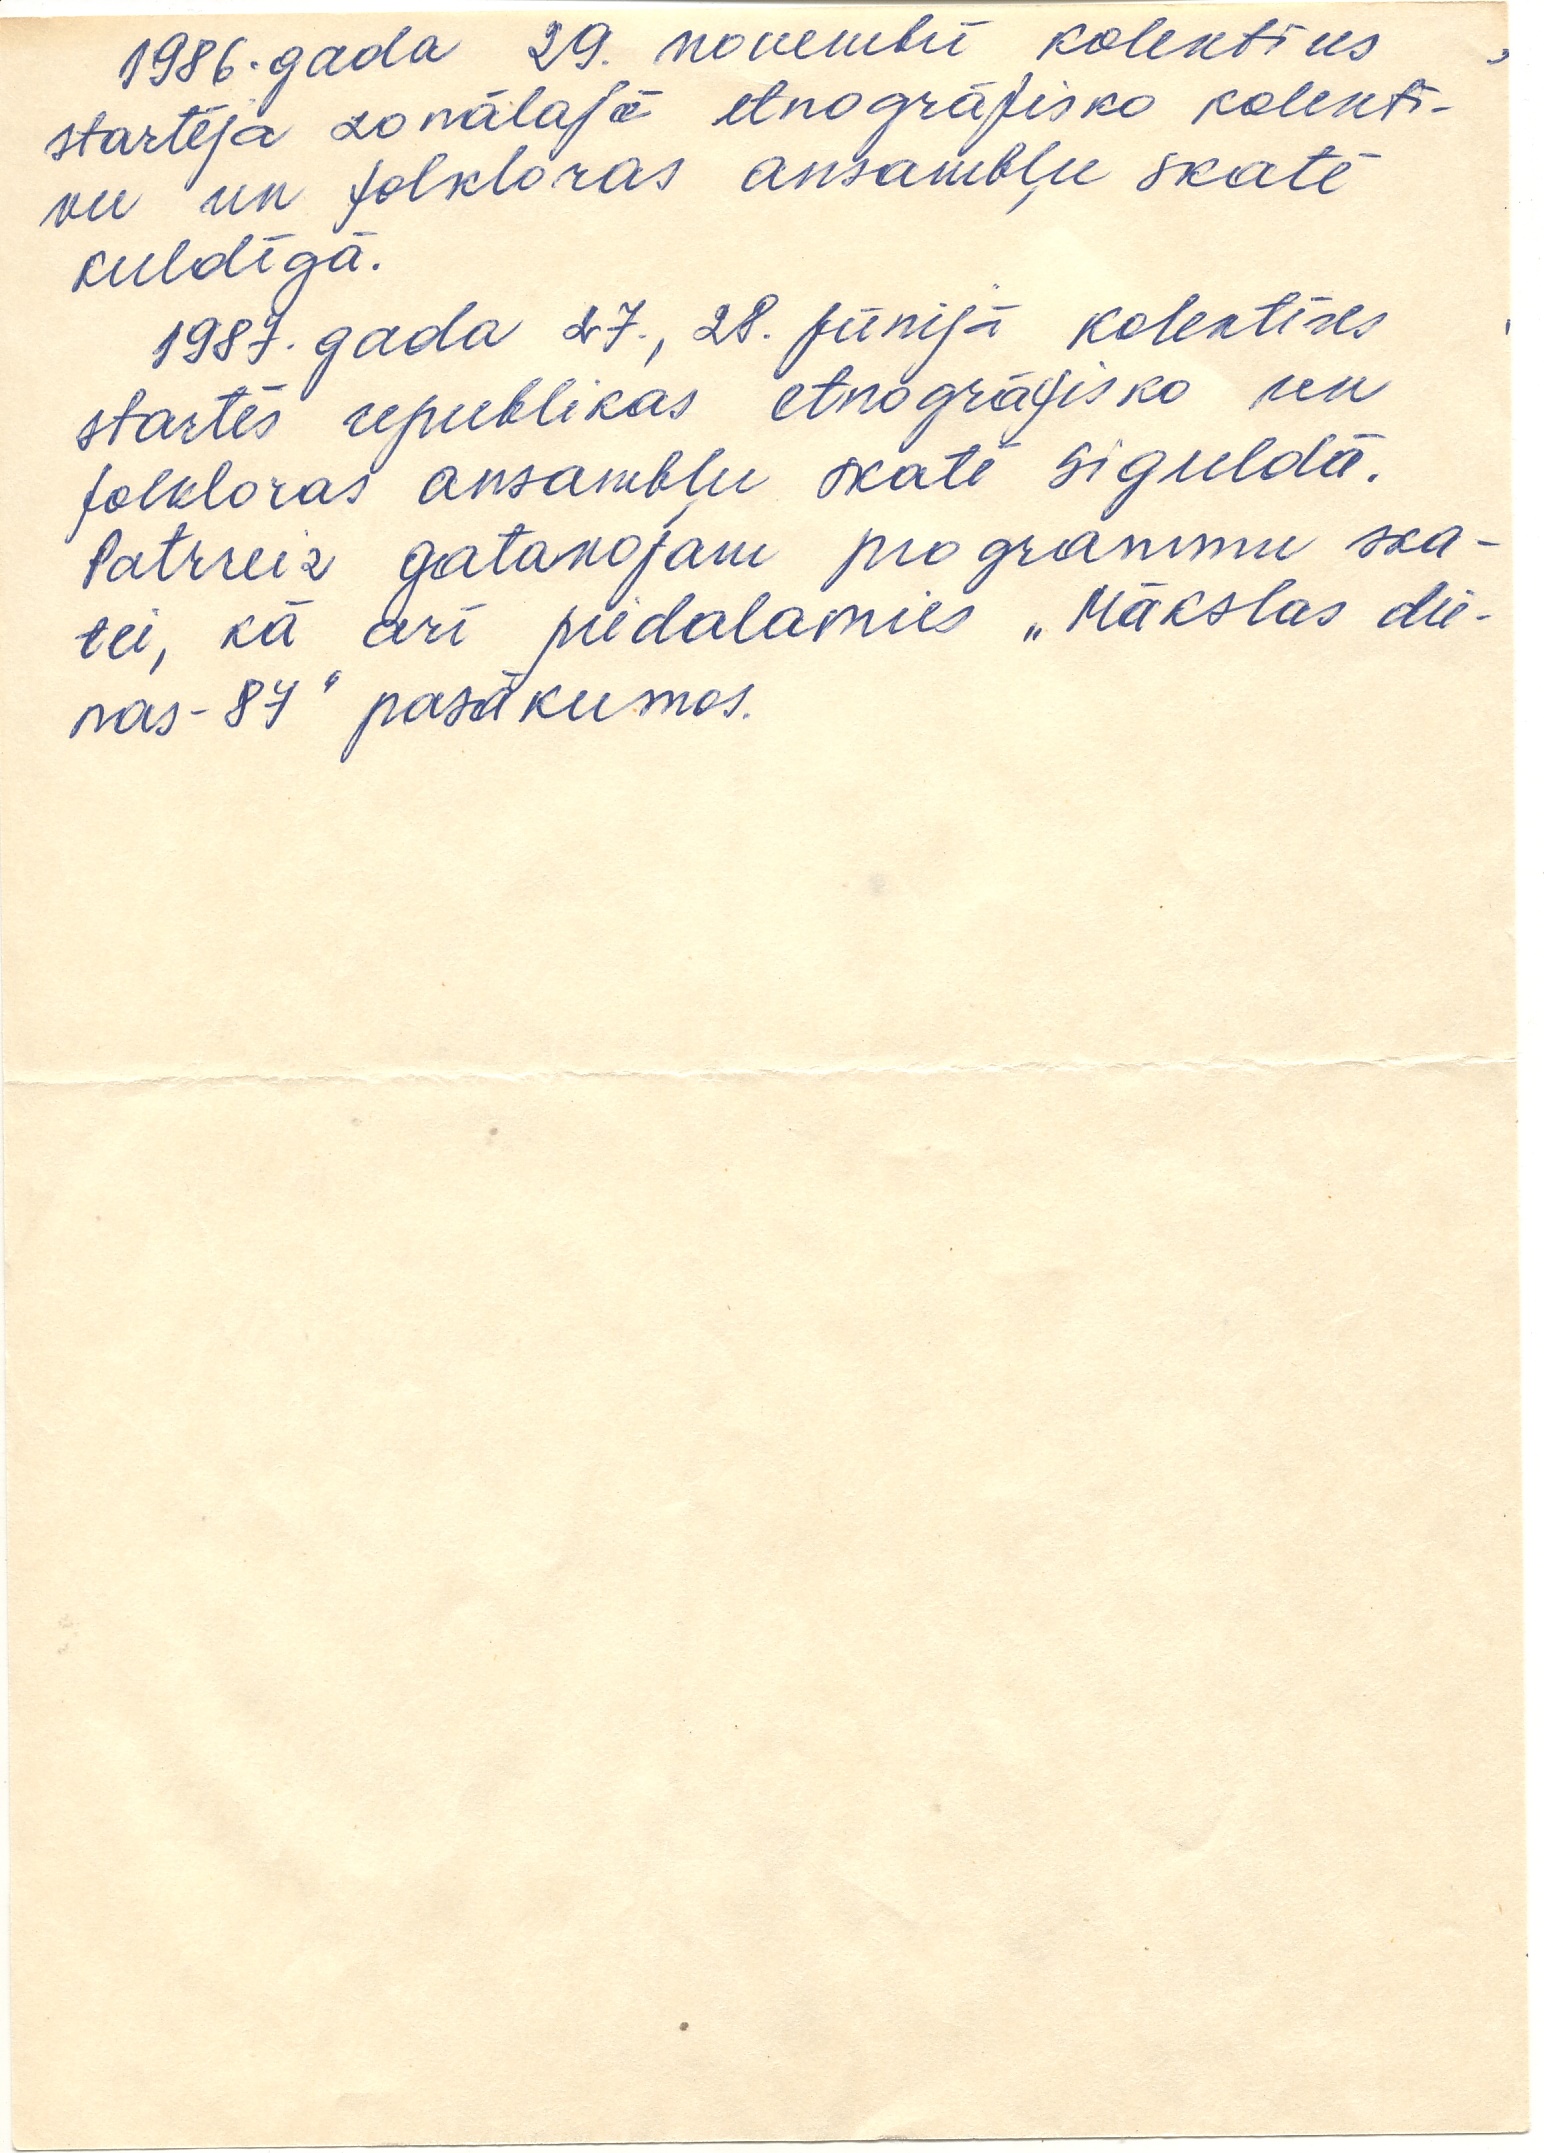 1986. gada 29. novembrī kolektīvs
startēja zonālajā etnogrāfisko kolektī-
vu un folkloras ansambļu skatē
Kuldīgā.
1987. gada 27., 28. jūnijā kolektīvs
startēs republikas etnogrāfisko un
folkloras ansambļu skatē Siguldā.
Patrreiz gatavojam programmu ska-
tei, kā arī piedalamies „Mākslas die-
nas-87" pasākumos.